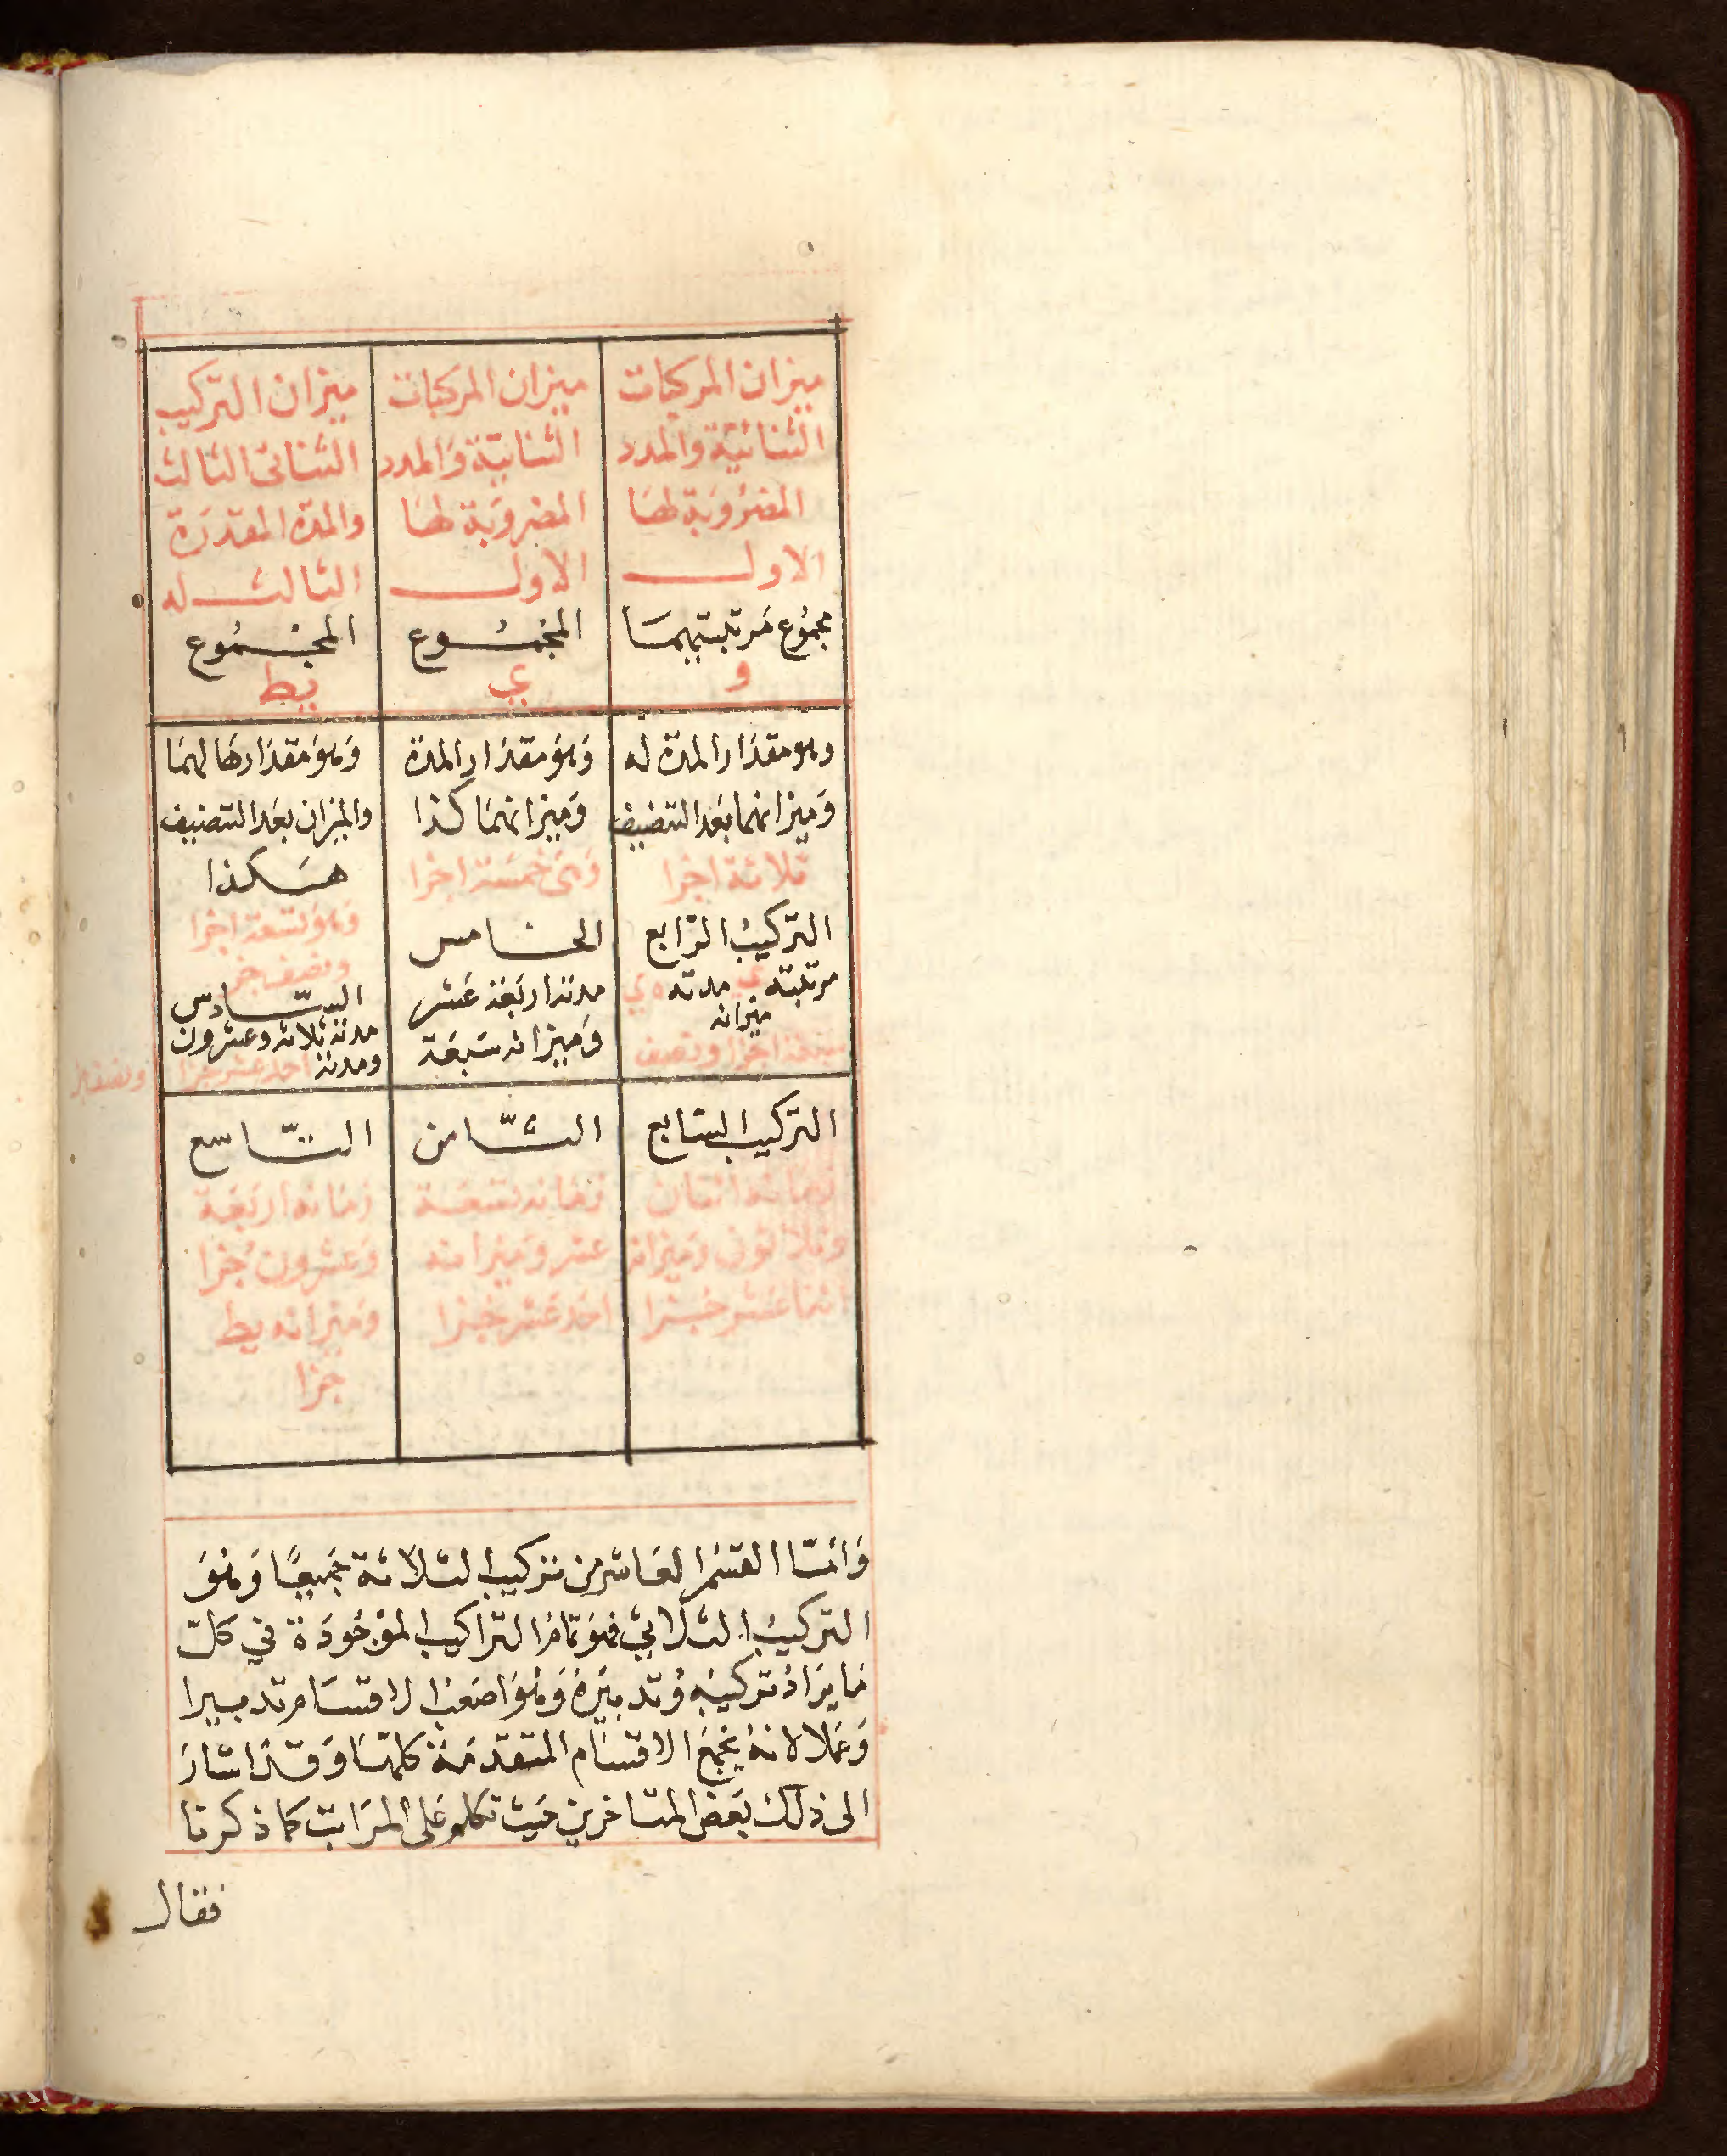 ميزان المركبات
الثنائية والمدد
المضروبة لها
الاول
مجموع مرتبتيهما
و
ميزان المركبات
الثنائية والمدد
المضروبة لها
الاول
المجموع
ى
ميزان التركيب
الثنائى الثالث
والمدة المقدرة
الثالث له
المجموع
يط
وهو مقدار المدة له
وميزانهما بعد التنصيف
ثلاثة اجزا
التركيب الرابع
مرتبته مدته
ميزانه
اجزا ونصف
وهو مقدار المدة
وميزانهما كذا
وهى خمسة اجزا
الخامس
مدته اربعة عشر
وميزانه سبعة
وهو مقدارها لهما
والميزان بعد التنصيف
هكذا
وهو تسعة اجزا
ونصف جز
السادس
مدته ثلاثة وعشرون
ومدته احد عشر جزا
ونصف
التركيب السابع
زمانه اثنان
وثلاثون وميزانه
اثنا عشر جزا
الثامن
زمانه تسعة
عشر وميزانه
احد عشر جزا
التاسع
زمانه اربعة
وعشرون جزا
وميزانه يط
جزا
وَامّا القسم العاشر من تركيب الثلاثة جميعًا وَهوَ
التركيب الثلاثي فهو تمام التراكيب الموجودة في كلّ
ما يراد تركيبه وتدبيره وهو اصعب الاقسام تدبيرا
وعملا لانه يجمع الاقسام المتقدمة كلها وقد اشار
الى ذلك بعض المتاخرين حيث تكلم على المراتب كما ذكرنا
فقال